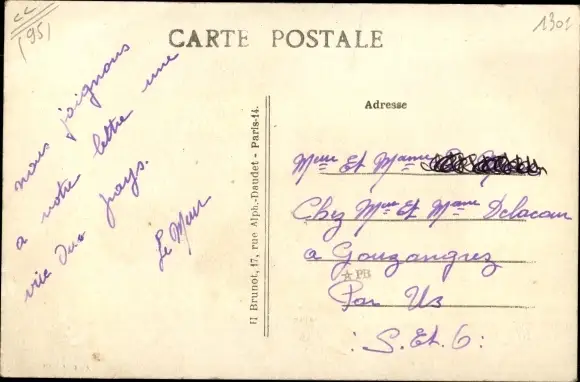 CC
(95)
1302
CARTE POSTALE
nous joignons
a notre lettre une
vue du pays.
Le Meur
H Brunot, 17, rue Alph.-Daudet - Paris-14.
Adresse
Meur Et Mame
Chez Meur Et Mame Delacour
a Gouzangrez
PB
Par Us
S. Et. O: